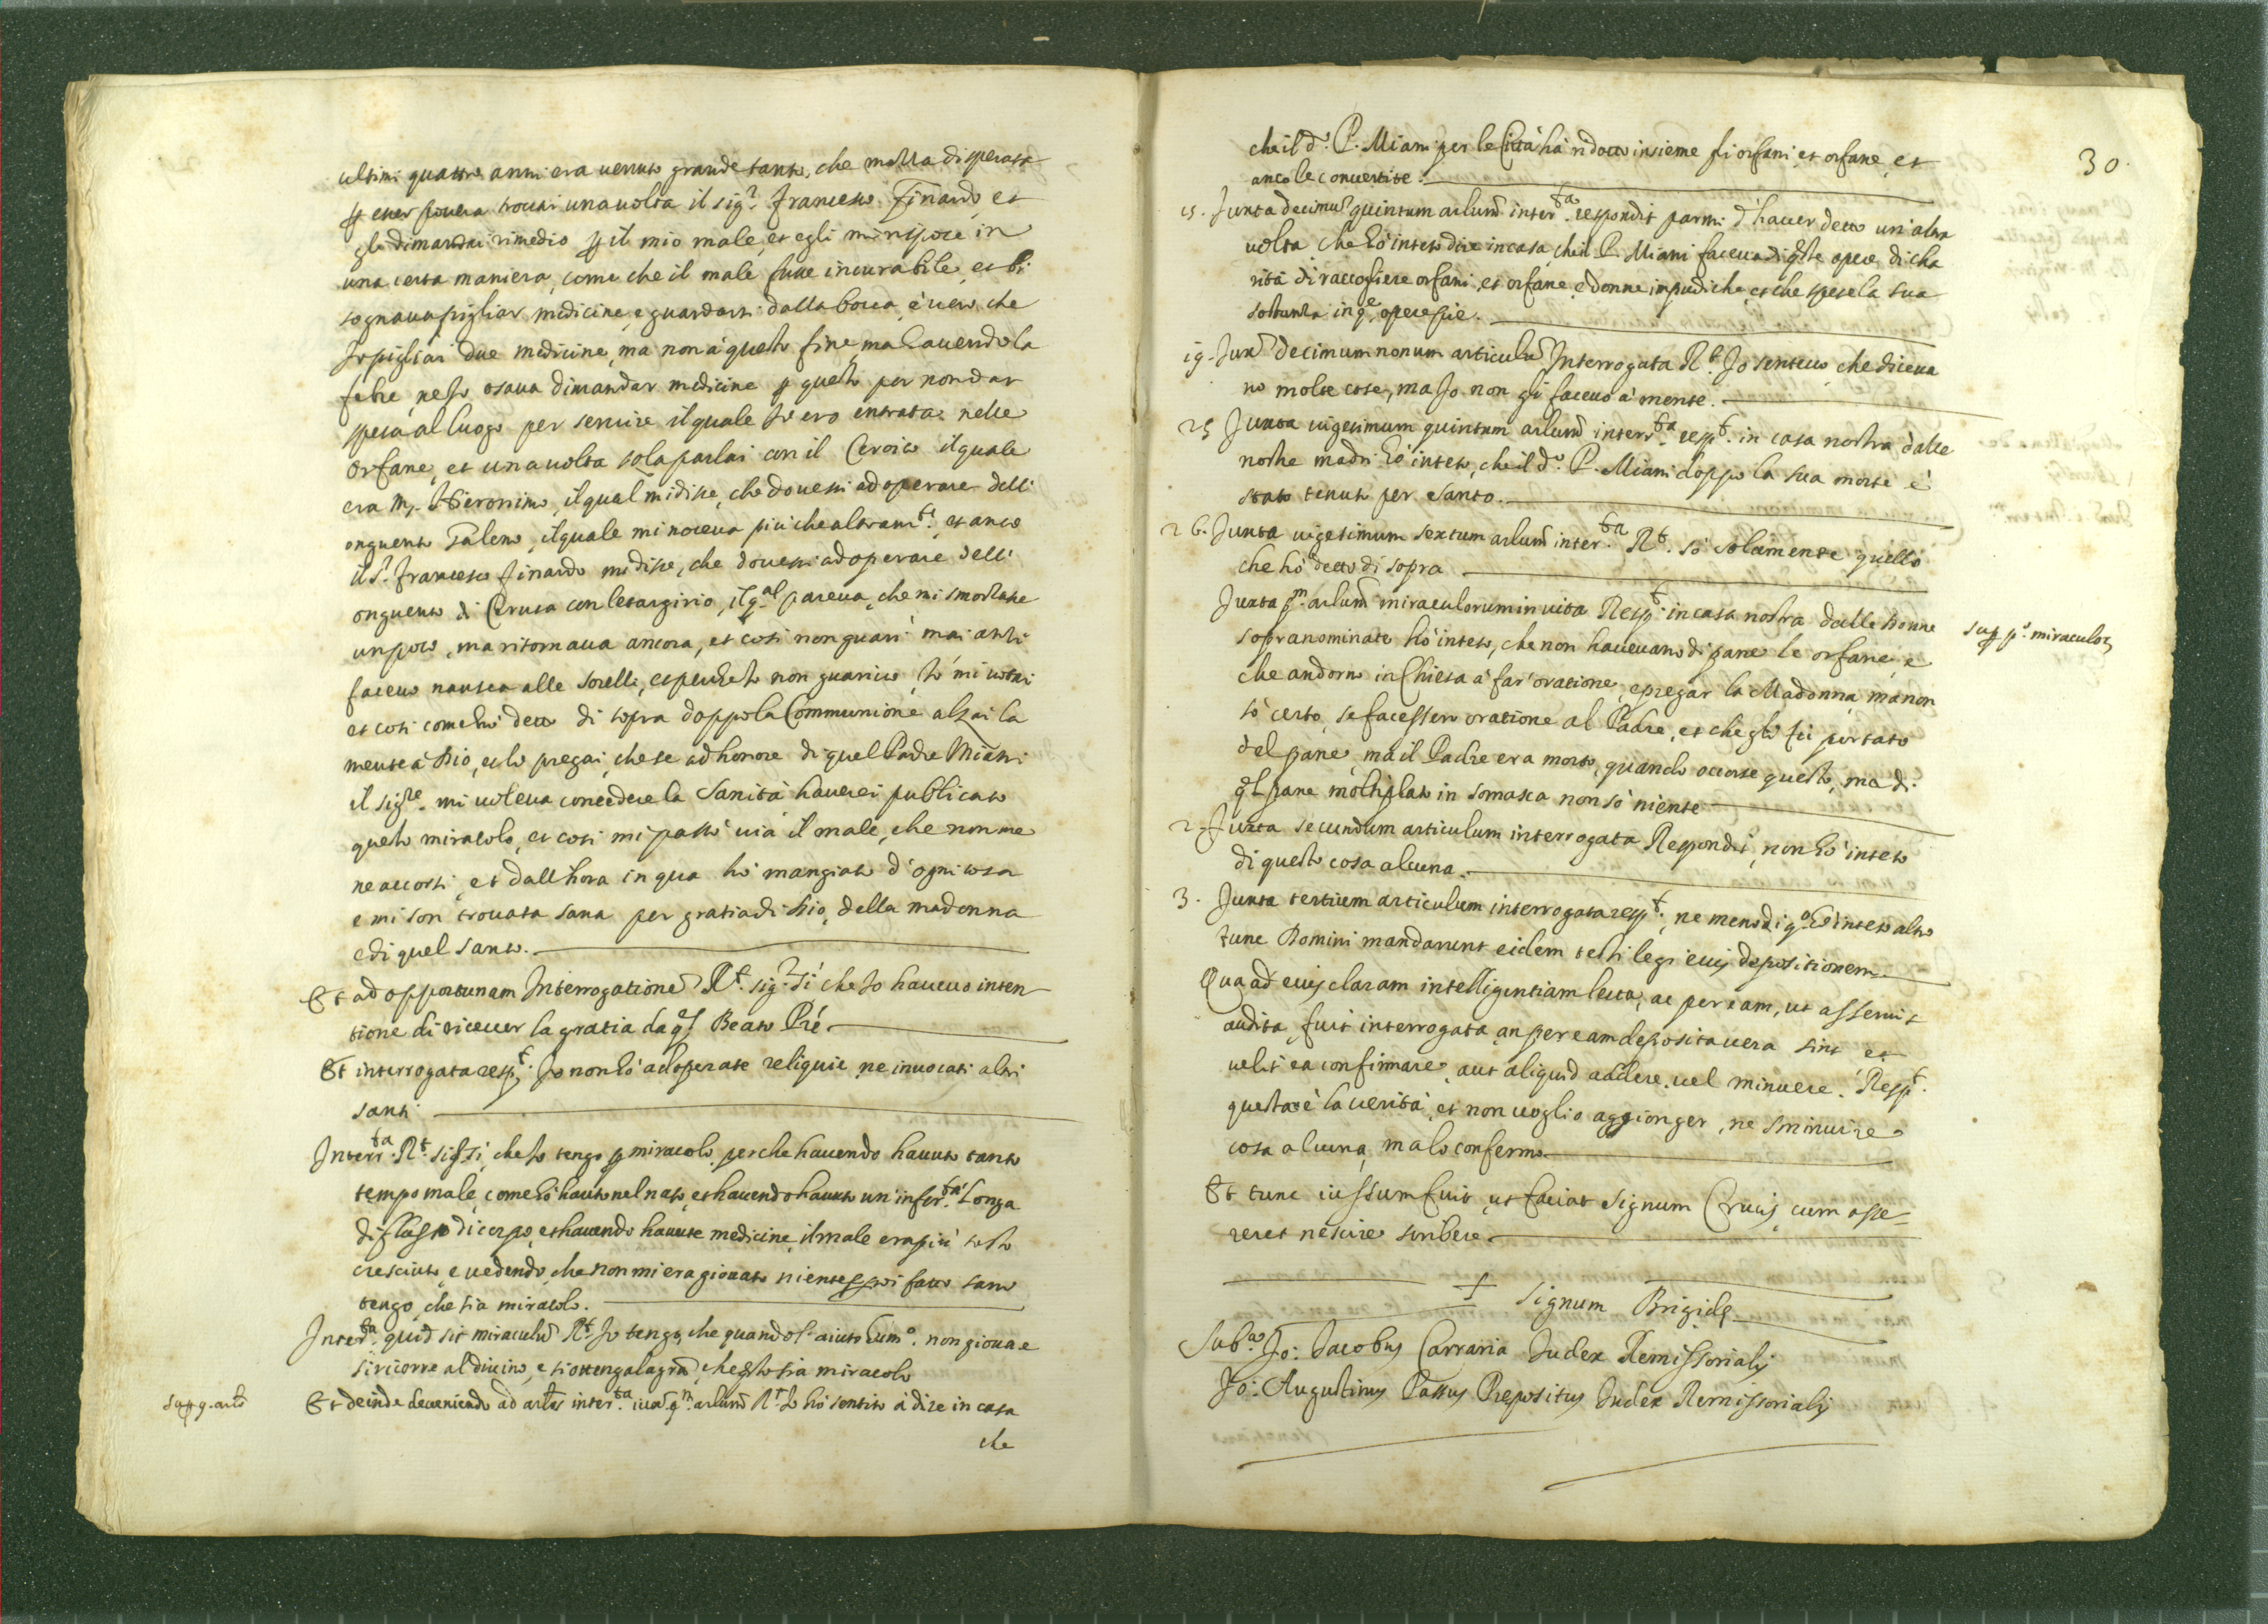 ultimi quattro anni era venuto grande tanto, che mezza disperata
p esser povera trovai una volta il sig.r Francesco Finardo, et
gli dimandai rimedio p il mio male, et egli mi rispose in
una certa maniera, come che il male fusse incurabile, et bi
sognava pigliar medicine, e guardarsi dalla bocca, è vero che
Io pigliai due medicine, ma non à questo fine, ma havendo la
febre, ne Io osava dimandar medicine p questo per non dar
spesa al luogo per servire il quale Io ero entrata nelle
orfane, et una volta sola parlai con il Ceroico il quale
era M. Hieronimo, il qual mi disse, che dovessi adoperare delli
onguento Galeno, il quale mi noceva più che altram.te, et anco
il S.r Francesco Finardo mi disse, che dovessi adoperare delli
onguento di Cerusa con letargirio, il q.al pareva, che mi smorzasse
un poco, ma ritornava ancora, et così non guarì mai anzi
facevo nausea alle sorelle, et perche Io non guarivo, Io mi votai
et così come hò detto di sopra doppo la Communione alzai la
mente à Dio, et lo pregai, che se ad honore di quel Padre Miani
il sig.re mi voleva concedere la Sanità haverei publicato
questo miracolo, et così mi passò via il male, che non me
ne accorsi, et dall'hora in qua hò mangiato d'ogni cosa
e mi son trovata sana per gratia di Dio, della madonna
e di quel santo.
Et ad opportunam Interrogatione R.t sig.r sì che Io havevo inten
tione di ricever la gratia da q.l Beato Prè
Et interrogata resp.t Io non hò adoperate reliquie, ne invocati altri
santi
Interr.ta R.t sig.r sì, che Io tengo p miracolo, perche havendo havuto tanto
tempo male, come hò hauto nel naso, et havendo hauuto un'infer.tà longa
di flusso di corpo, et havendo havute medicine, il male era più tosto
cresciuto, e vedendo, che non mi era giovato niente, e poi fatto sano
tengo, che sia miracolo.
Inter.ta quid sit miraculu R.t Io tengo, che quando l'aiuto hum.o non giova e
si ricorre al divino, e si ottenga la gra, che qsto sia miracolo
Sup 9. arlo
Et deinde deveniendo ad arlos inter.ta iux q.m arlum R.t Io hò sentito à dire in casa
che
30.
che il d.o P. Miani per le Città hà ridotto insieme fi orfani, et orfane, et
anco le convertite.
15. Juxta decimu quintum arlum inter.ta respondit parmi d'haver detto un'altra
volta, che hò inteso dire in casa, che il P. Miani faceva di qste opere di cha
rità di raccogliere orfani, et orfane, e donne impudiche, et che spese la sua
sostanza in q.e opere pie.
19. Jux decimum nonum articulu Interrogata R.t Io sentevo, che diceva
no molte cose, ma Io non gli facevo à mente.
25 Juxta vigesimum quintum arlum interr.ta resp.t in casa nostra dalle
nostre madri hò inteso, che il d.o P. Miani doppo la sua morte è
stato tenuto per Santo.
26. Juxta vigesimum sextum arlum inter.ta R.t sò solamente quello
che hò detto di sopra
Juxta p.m arlum miraculorum in vita Resp.t in casa nostra dalle Donne
Sup p.o miraculor
sopranominate hò inteso, che non havevano di pane le orfane, e
che andorno in Chiesa à far'oratione, e pregar la Madonna, ma non
sò certo, se facessero oratione al Padre, et che gli fù portato
del pane, ma il Padre era morto, quando occorse questo, ma di
ql pane moltiplicato in Somasca non sò niente
2. Juxta secundum articulum interrogata Respondit, non hò inteso
di questo cosa alcuna.
3. Juxta tertium articulum interrogata resp.t, ne meno di q.o hò inteso altro
tunc Domini mandarunt eidem testi legi eius depositionem
Qua ad eius claram intelligentiam lecta, ac per eam, ut asseruit
audita, fuit interrogata, an per eam deposita vera sint et
velit ea confirmare, aut aliquid addere, vel minuere. Resp.t
questa è la verità, et non voglio aggionger, ne sminuire
cosa alcuna, ma lo confermo
Et tunc iussum fuit, ut faciat signum Crucis, cum asse-
reret nescire scribere.
+ Signum Brigidę
Sub.o Jo: Jacobus Carraria Judex Remissorialis
Jo: Augustinus Passus Prepositus Judex Remissorialis